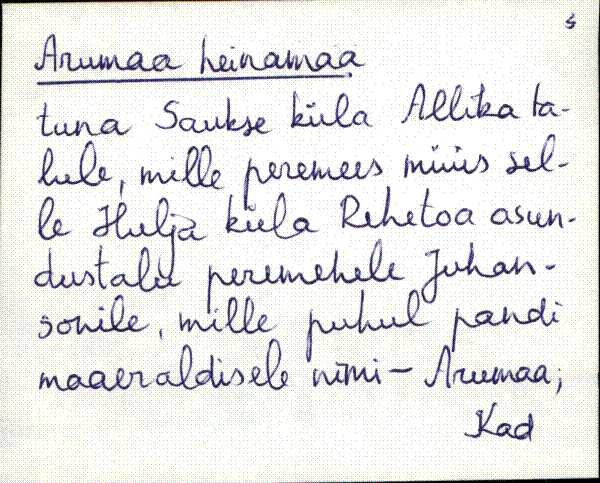 Arumaa heinamaa
tuna Saukse küla Allika ta-
lule, mille peremees müüs sel-
le Hulja küla Rehetoa asun-
dustalu peremehele Juhan-
sonile, mille puhul pandi
maaeraldisele nimi – Arumaa;
Kad